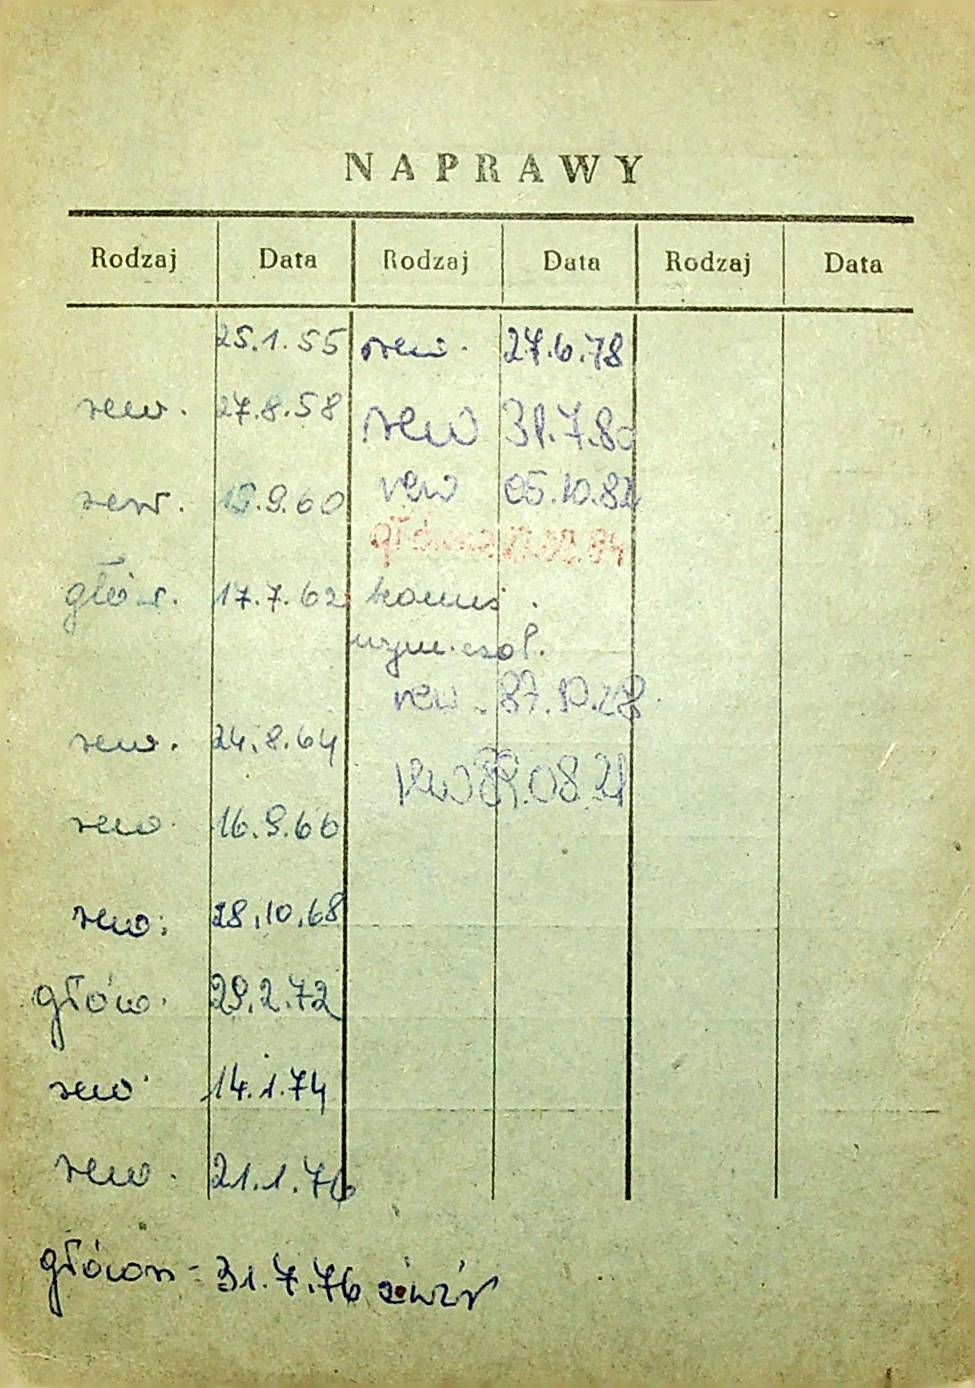 NAPRAWY
Rodzaj Data Rodzaj Data Rodzaj Data
25.1.55
rew. 27.8.58
rew. 15.9.60
głów. 17.7.62
rew. 24.8.64
rew. 16.9.66
rew. 28.10.68
głów. 29.2.72
rew. 14.1.74
rew. 21.1.76
główn - 31.7.76
rew. 27.6.78
rew 31.7.80
rew 05.10.82
główna
wym. czoł.
rew. 87.10.28
rew 89.08.21